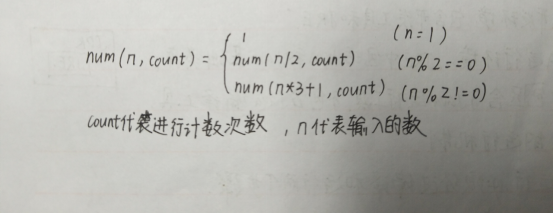 1 (n=1)
num(n,count) = { num(n/2,count) (n%2==0)
num(n*3+1,count) (n%2!=0)
count代表进行计数次数,n代表输入的数